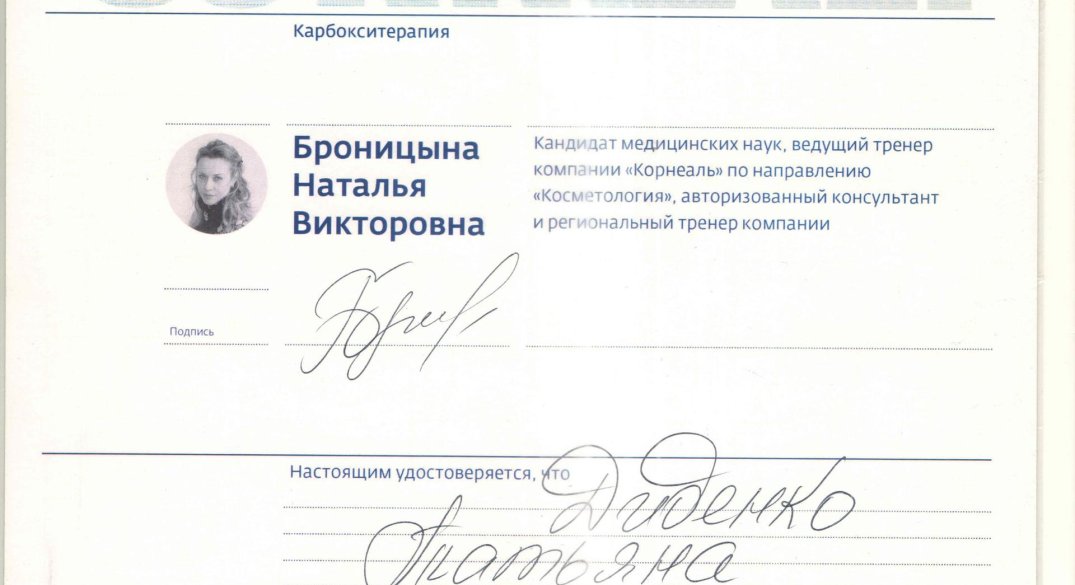 Карбокситерапия
Броницына
Наталья
Викторовна
Кандидат медицинских наук, ведущий тренер
компании «Корнеаль» по направлению
«Косметология», авторизованный консультант
и региональный тренер компании
Подпись
Настоящим удостоверяется, что
Диденко
Татьяна